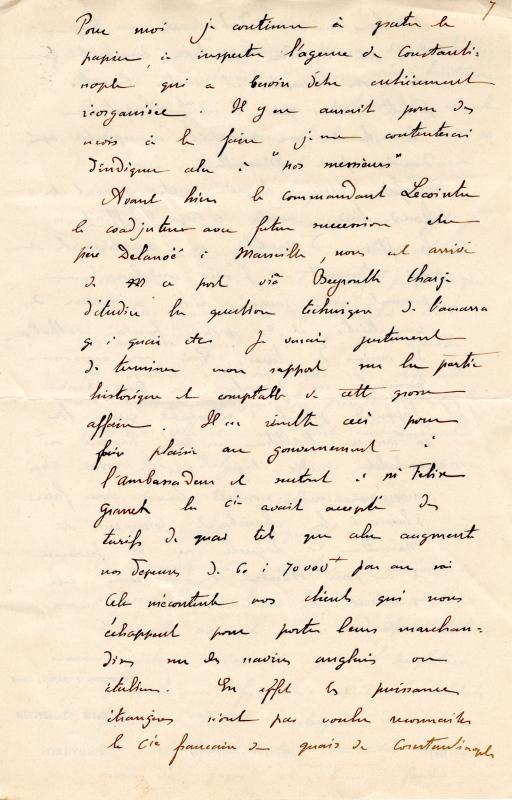 7
Pour moi je continue à gratter le
papier, à inspecter l'agence de Constanti-
nople qui a besoin d'être entièrement
réorganisée. Il y en aurait pour des
mois à le faire je me contenterai
d'indiquer cela à "nos messieurs"
Avant hier le commandant Lecointre
le coadjuteur avec future succession du
père Delanoë à Marseille, nous est arrivé
de ce port via Beyrouth chargé
d'étudier la question technique de l'amarra
ge à quai etc Je venais justement
de terminer mon rapport sur la partie
historique et comptable de cette grosse
affaire. Il en résulte ceci pour
faire plaisir au gouvernement — à
l'ambassadeur et surtout à Mr Felix
Granet la Cie avait accepté des
tarifs de quai tels que cela augmente
nos dépenses de 60 à 70000 par an
Cela mécontente nos clients qui nous
échappent pour porter leurs marchan=
dises sur des navires anglais ou
italiens. En effet les puissances
étrangères n'ont pas voulu reconnaitre
la Cie française des quais de Constantinople